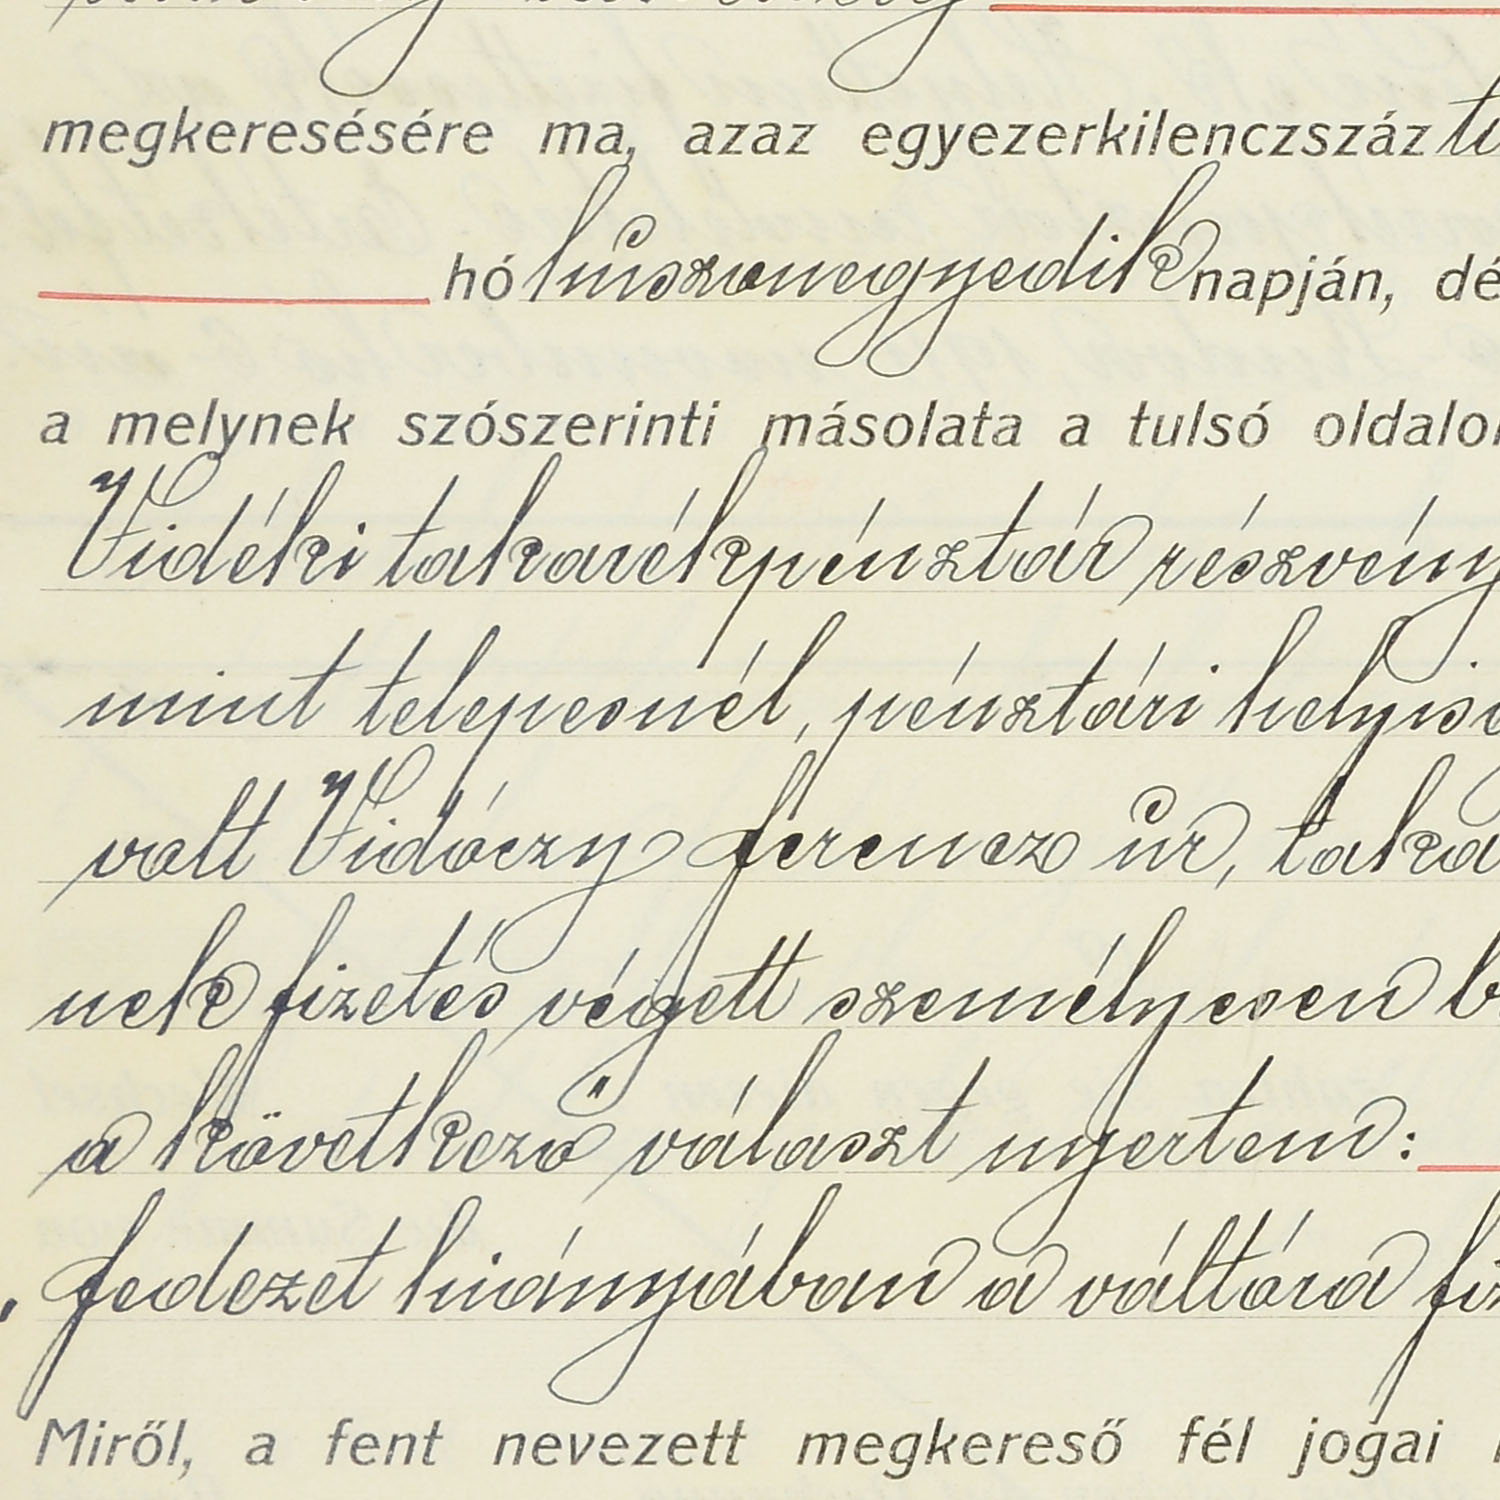 megkeresésére ma, azaz egyezerkilenczszáz
hó huszonegyedik napján, dé
a melynek szószerinti másolata a tulsó oldalon
Vidéki takarékpénztár részvény
mint telepesnél, pénztári helyisé
volt Vidóczy Ferencz úr, taka
nek fizetés végett személyesen b
a következő választ nyertem:
„fedezet hiányában a váltóra fiz
Miről, a fent nevezett megkereső fél jogai